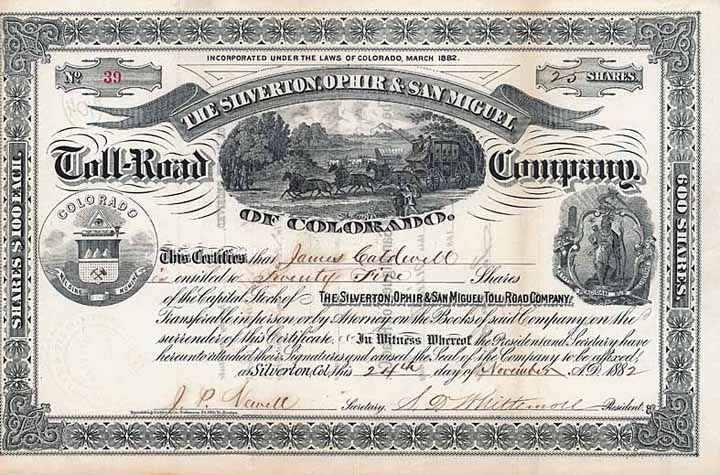 INCORPORATED UNDER THE LAWS OF COLORADO, MARCH 1882.
No 39
25 SHARES.
THE SILVERTON, OPHIR & SAN MIGUEL
Toll-Road Company.
OF COLORADO.
SHARES $100 EACH.
600 SHARES.
COLORADO
NIL SINE NUMINE
This Certifies that James Caldwell
is entitled to Twenty Five Shares
of the Capital Stock of THE SILVERTON, OPHIR & SAN MIGUEL TOLL ROAD COMPANY,
Transferable in person or by Attorney on the Books of said Company, on the
surrender of this Certificate. In Witness Whereof the President and Secretary have
hereunto attached their Signatures and caused the Seal of the Company to be affixed,
at Silverton, Col, this 24th day of November A.D. 1882
J. P. Newell Secretary. S. D. Whittemore President.